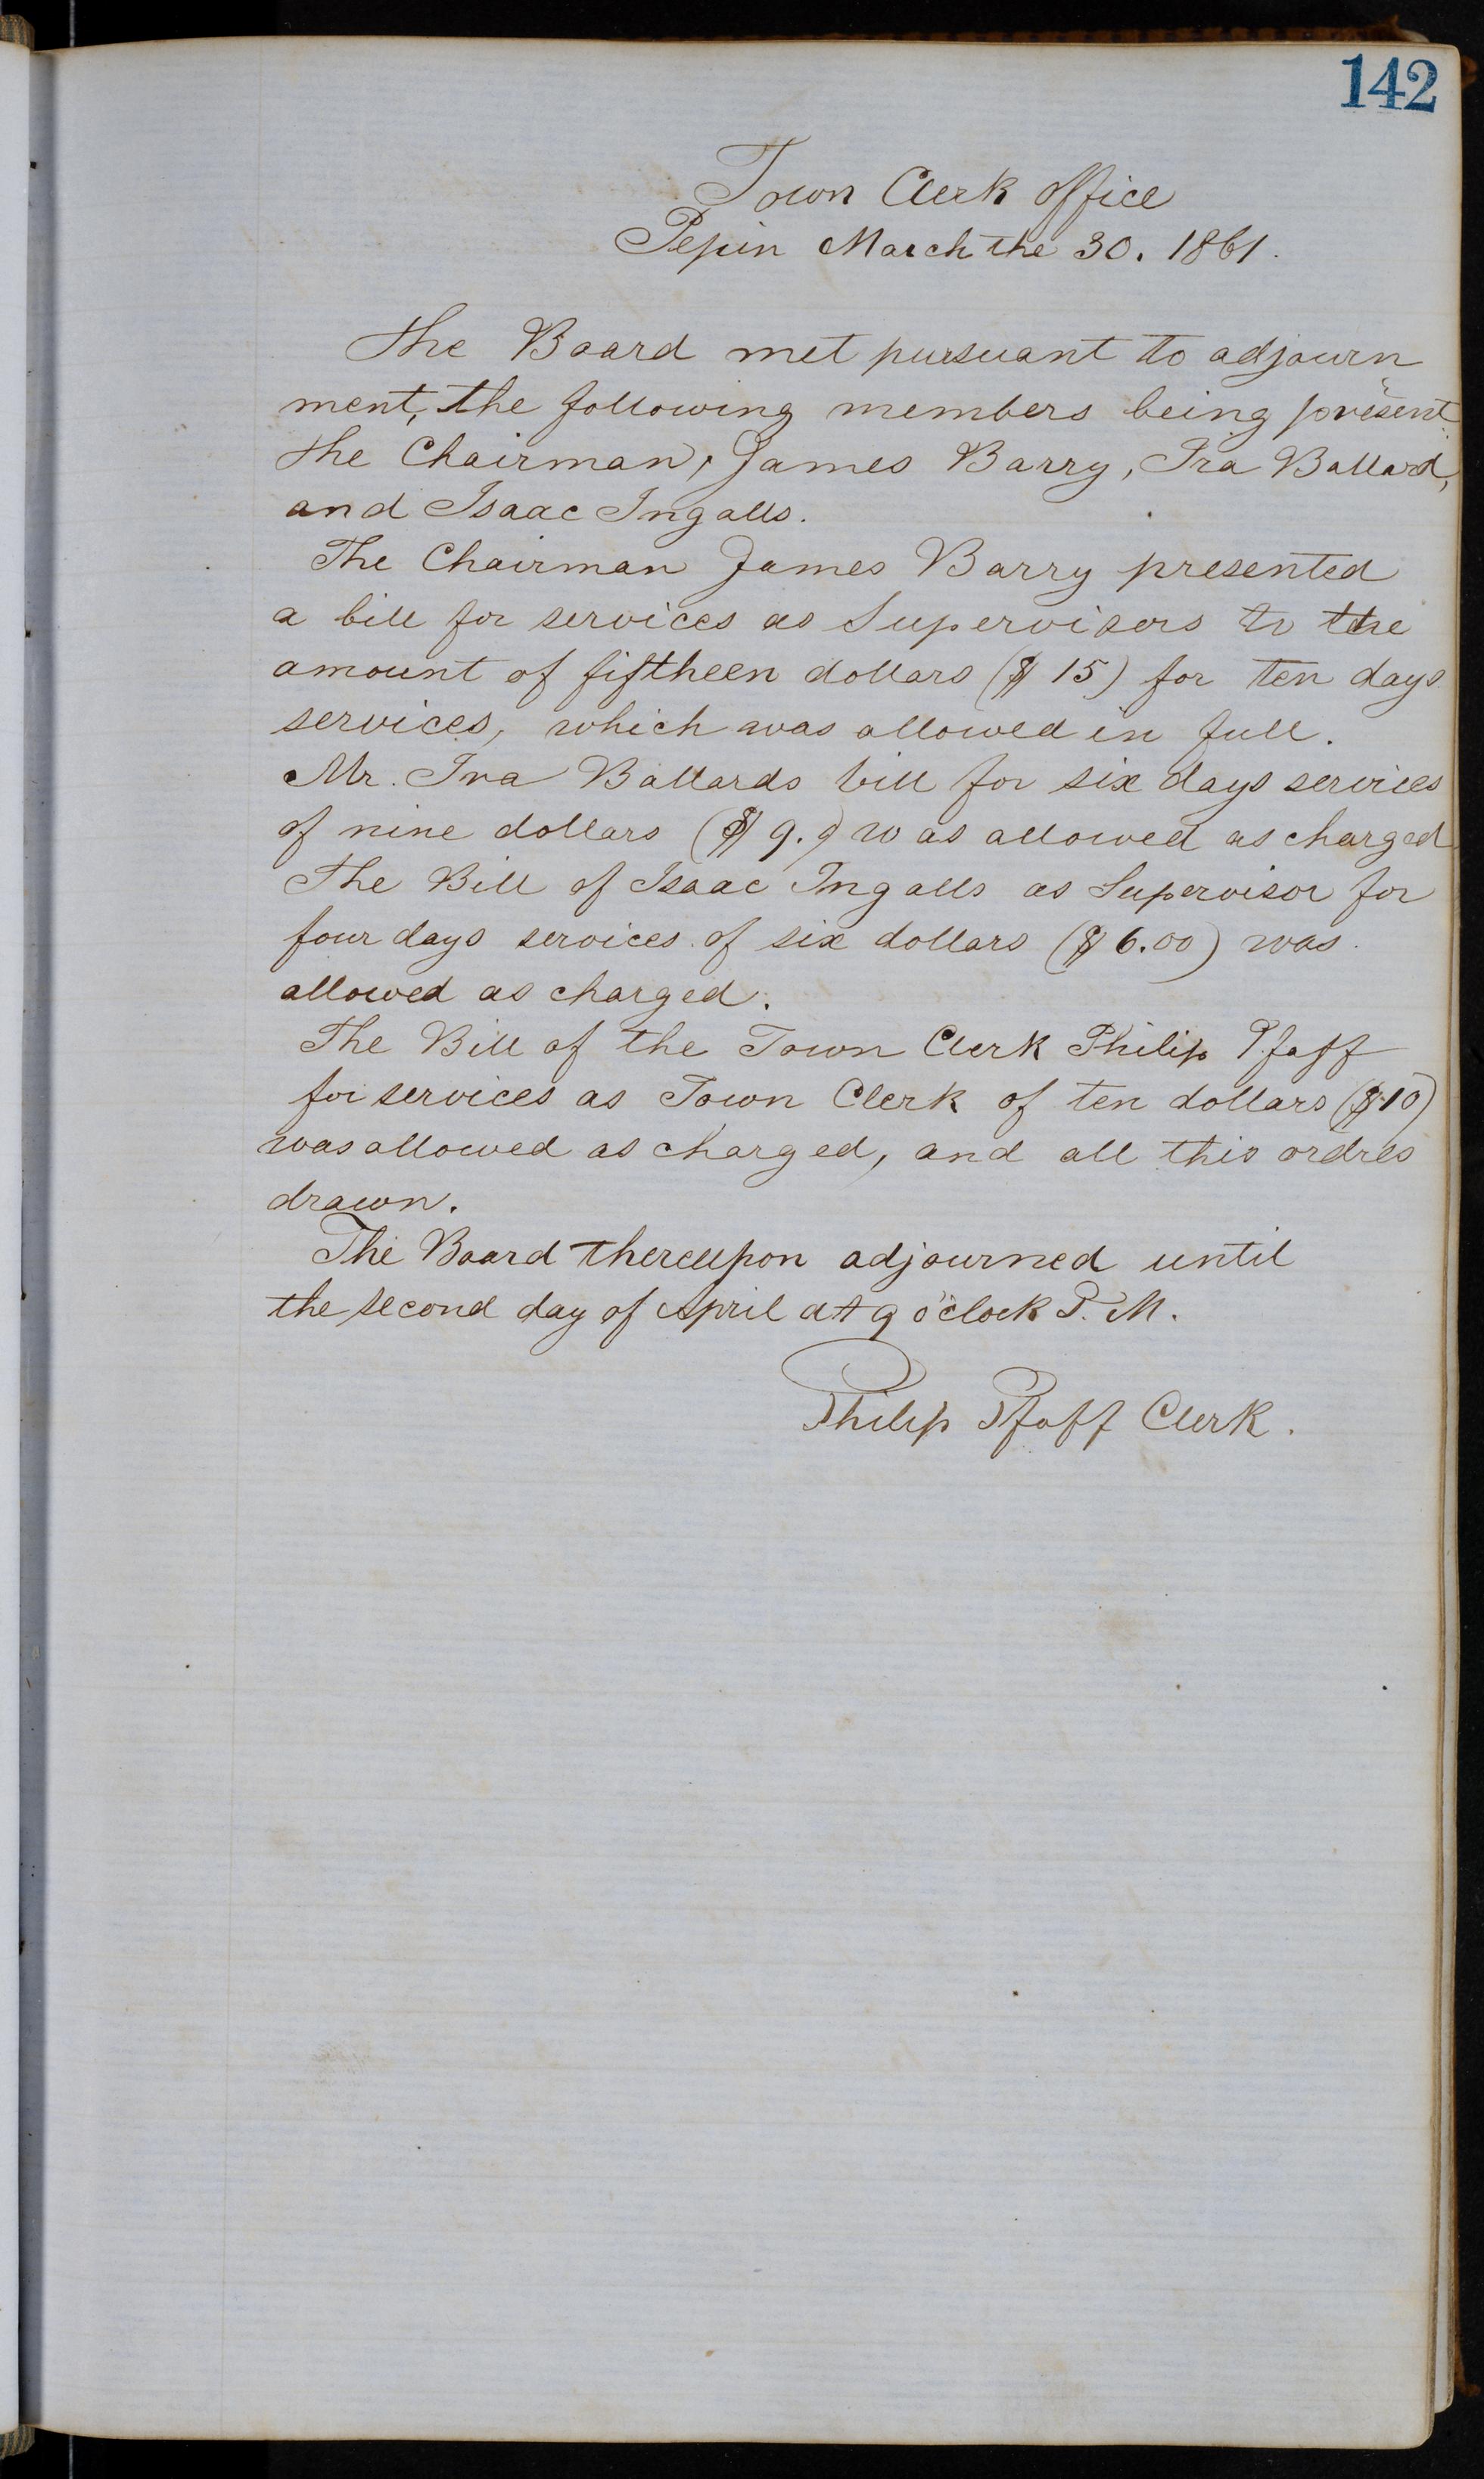 142
Town Clerk office
Pepin March the 30. 1861.
the Board met pursuant to adjourn
ment, the following members being present
the Chairman, James Barry, Ira Ballard,
and Isaac Ingalls.
The Chairman James Barry presented
a bill for services as Supervisors to the
amount of fiftheen dollars ($ 15) for ten days
services, which was allowed in full.
Mr. Ira Ballards bill for six days services
of nine dollars ($ 9.) was allowed as charged
The Bill of Isaac Ingalls as Supervisor for
four days services of six dollars ($ 6.00) was
allowed as charged.
The Bill of the Town Clerk Philip Pfaff
for services as Town Clerk of ten dollars ($10)
was allowed as charged, and all this ordres
drawn.
The Board thereupon adjourned until
the second day of April at 9 o'clock P. M.
Philip Pfaff Clerk.